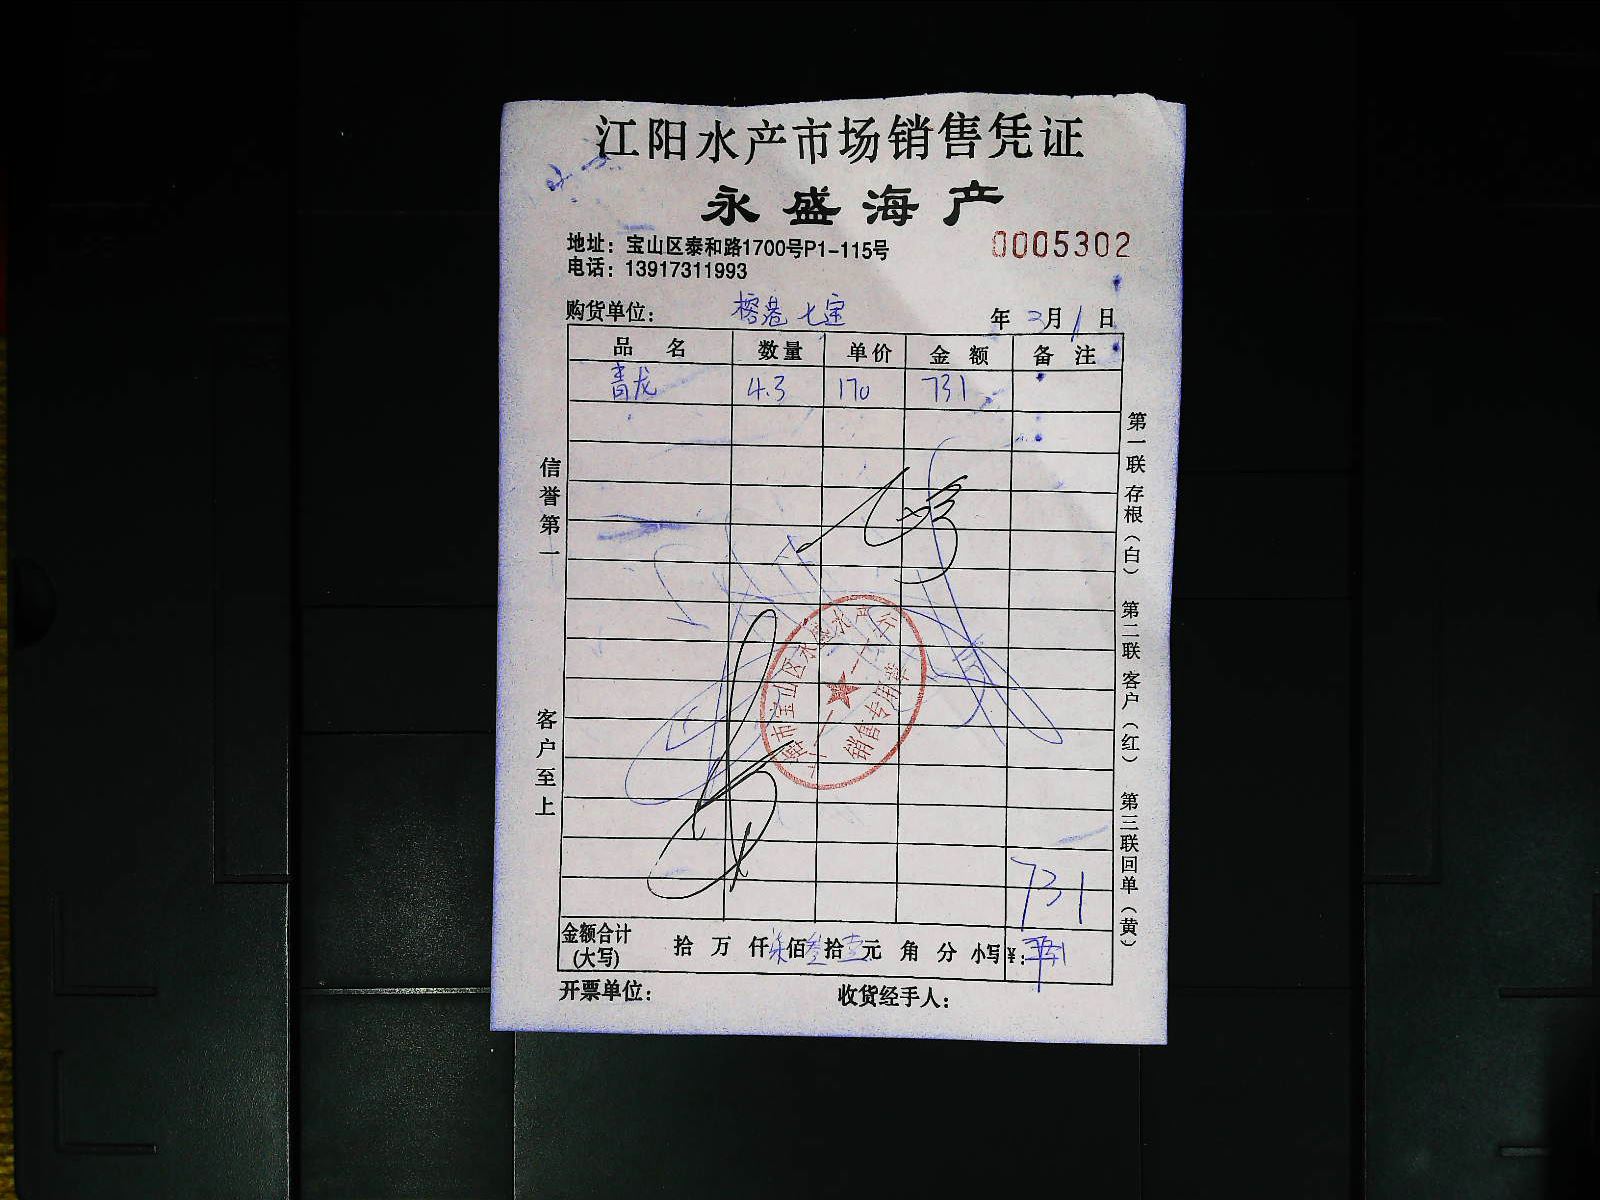 江阳水产市场销售凭证
永盛海产
地址：宝山区泰和路1700号P1-115号
0005302
电话：13917311993
购货单位：榕港 七宝 年 3月1日
品 名 数量 单价 金 额 备 注
青龙 4.3 170 731
信誉第一
客户至上
第一联 存根（白） 第二联 客户（红） 第三联 回单（黄）
宝山区永盛水产行
销售专用章
731
金额合计(大写) 拾 万 仟柒佰叁拾壹元 角 分 小写¥：731
开票单位： 收货经手人：